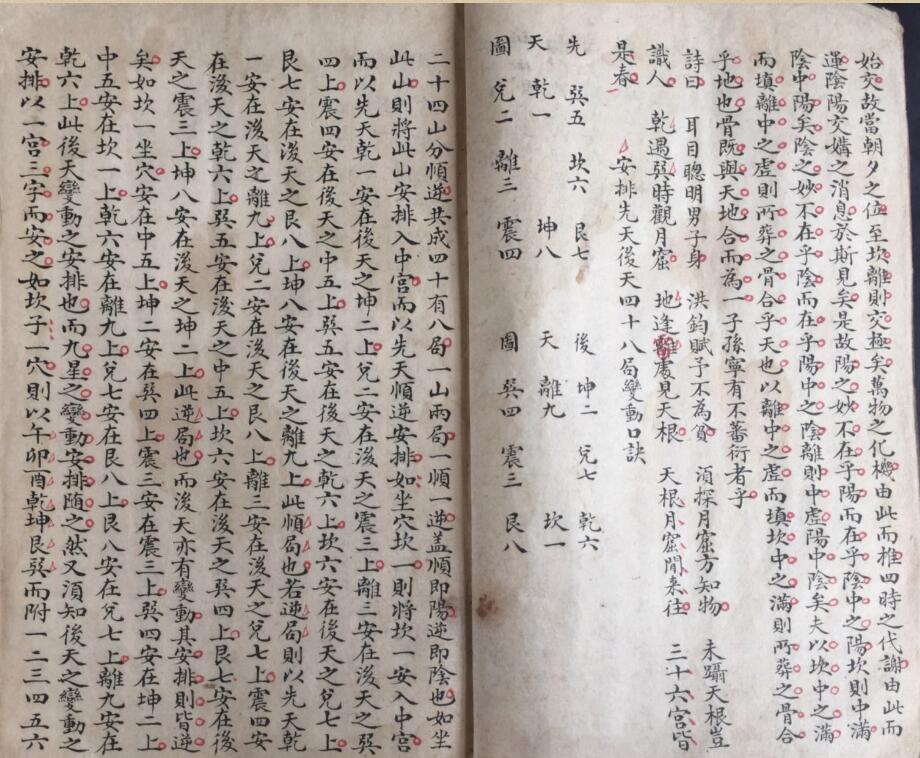 始交故當朝夕之位至坎離則交極矣萬物之化機由此而推四時之代謝由此而
運陰陽交媾之消息於斯見矣是故陽之妙不在乎陽而在乎陰中之陽坎則中滿
陰中陽矣陰之妙不在乎陰而在乎陽中之陰離則中虛陽中陰矣夫以坎中之滿
而填離中之虛則所葬之骨合乎天也以離中之虛而填坎中之滿則所葬之骨合
乎地也骨既與天地合而為一子孫寧有不蕃衍者乎
詩曰 耳目聰明男子身 洪鈞賦予不為貧 須探月窟方知物 未躡天根豈
識人 乾遇巽時觀月窟 地逢雷處見天根 天根月窟閒来往 三十六宮皆
是春
安排先天後天四十八局變動口訣
先 巽五 坎六 艮七 後 坤二 兌七 乾六
天 乾一 坤八 天 離九 坎一
圖 兌二 離三 震四 圖 巽四 震三 艮八
二十四山分順逆共成四十有八局一山兩局一順一逆盖順即陽逆即陰也如坐
此山則將此山安排入中宮而以先天順逆安排如坐穴坎一則將坎一安入中宮
而以先天乾一安在後天之坤二上兌二安在後天之震三上離三安在後天之巽
四上震四安在後天之中五上巽五安在後天之乾六上坎六安在後天之兌七上
艮七安在後天之艮八上坤八安在後天之離九上此順局也若逆局則以先天乾
一安在後天之離九上兌二安在後天之艮八上離三安在後天之兌七上震四安
在後天之乾六上巽五安在後天之中五上坎六安在後天之巽四上艮七安在後
天之震三上坤八安在後天之坤二上此逆局也而後天亦有變動其安排則皆逆
矣如坎一坐穴安在中五上坤二安在巽四上震三安在震三上巽四安在坤二上
中五安在坎一上乾六安在離九上兌七安在艮八上艮八安在兌七上離九安在
乾六上此後天變動之安排也而九星之變動安排随之然又須知後天之變動之
安排以一宮三字而安之如坎子一穴則以午卯酉乾坤艮巽而附一二三四五六